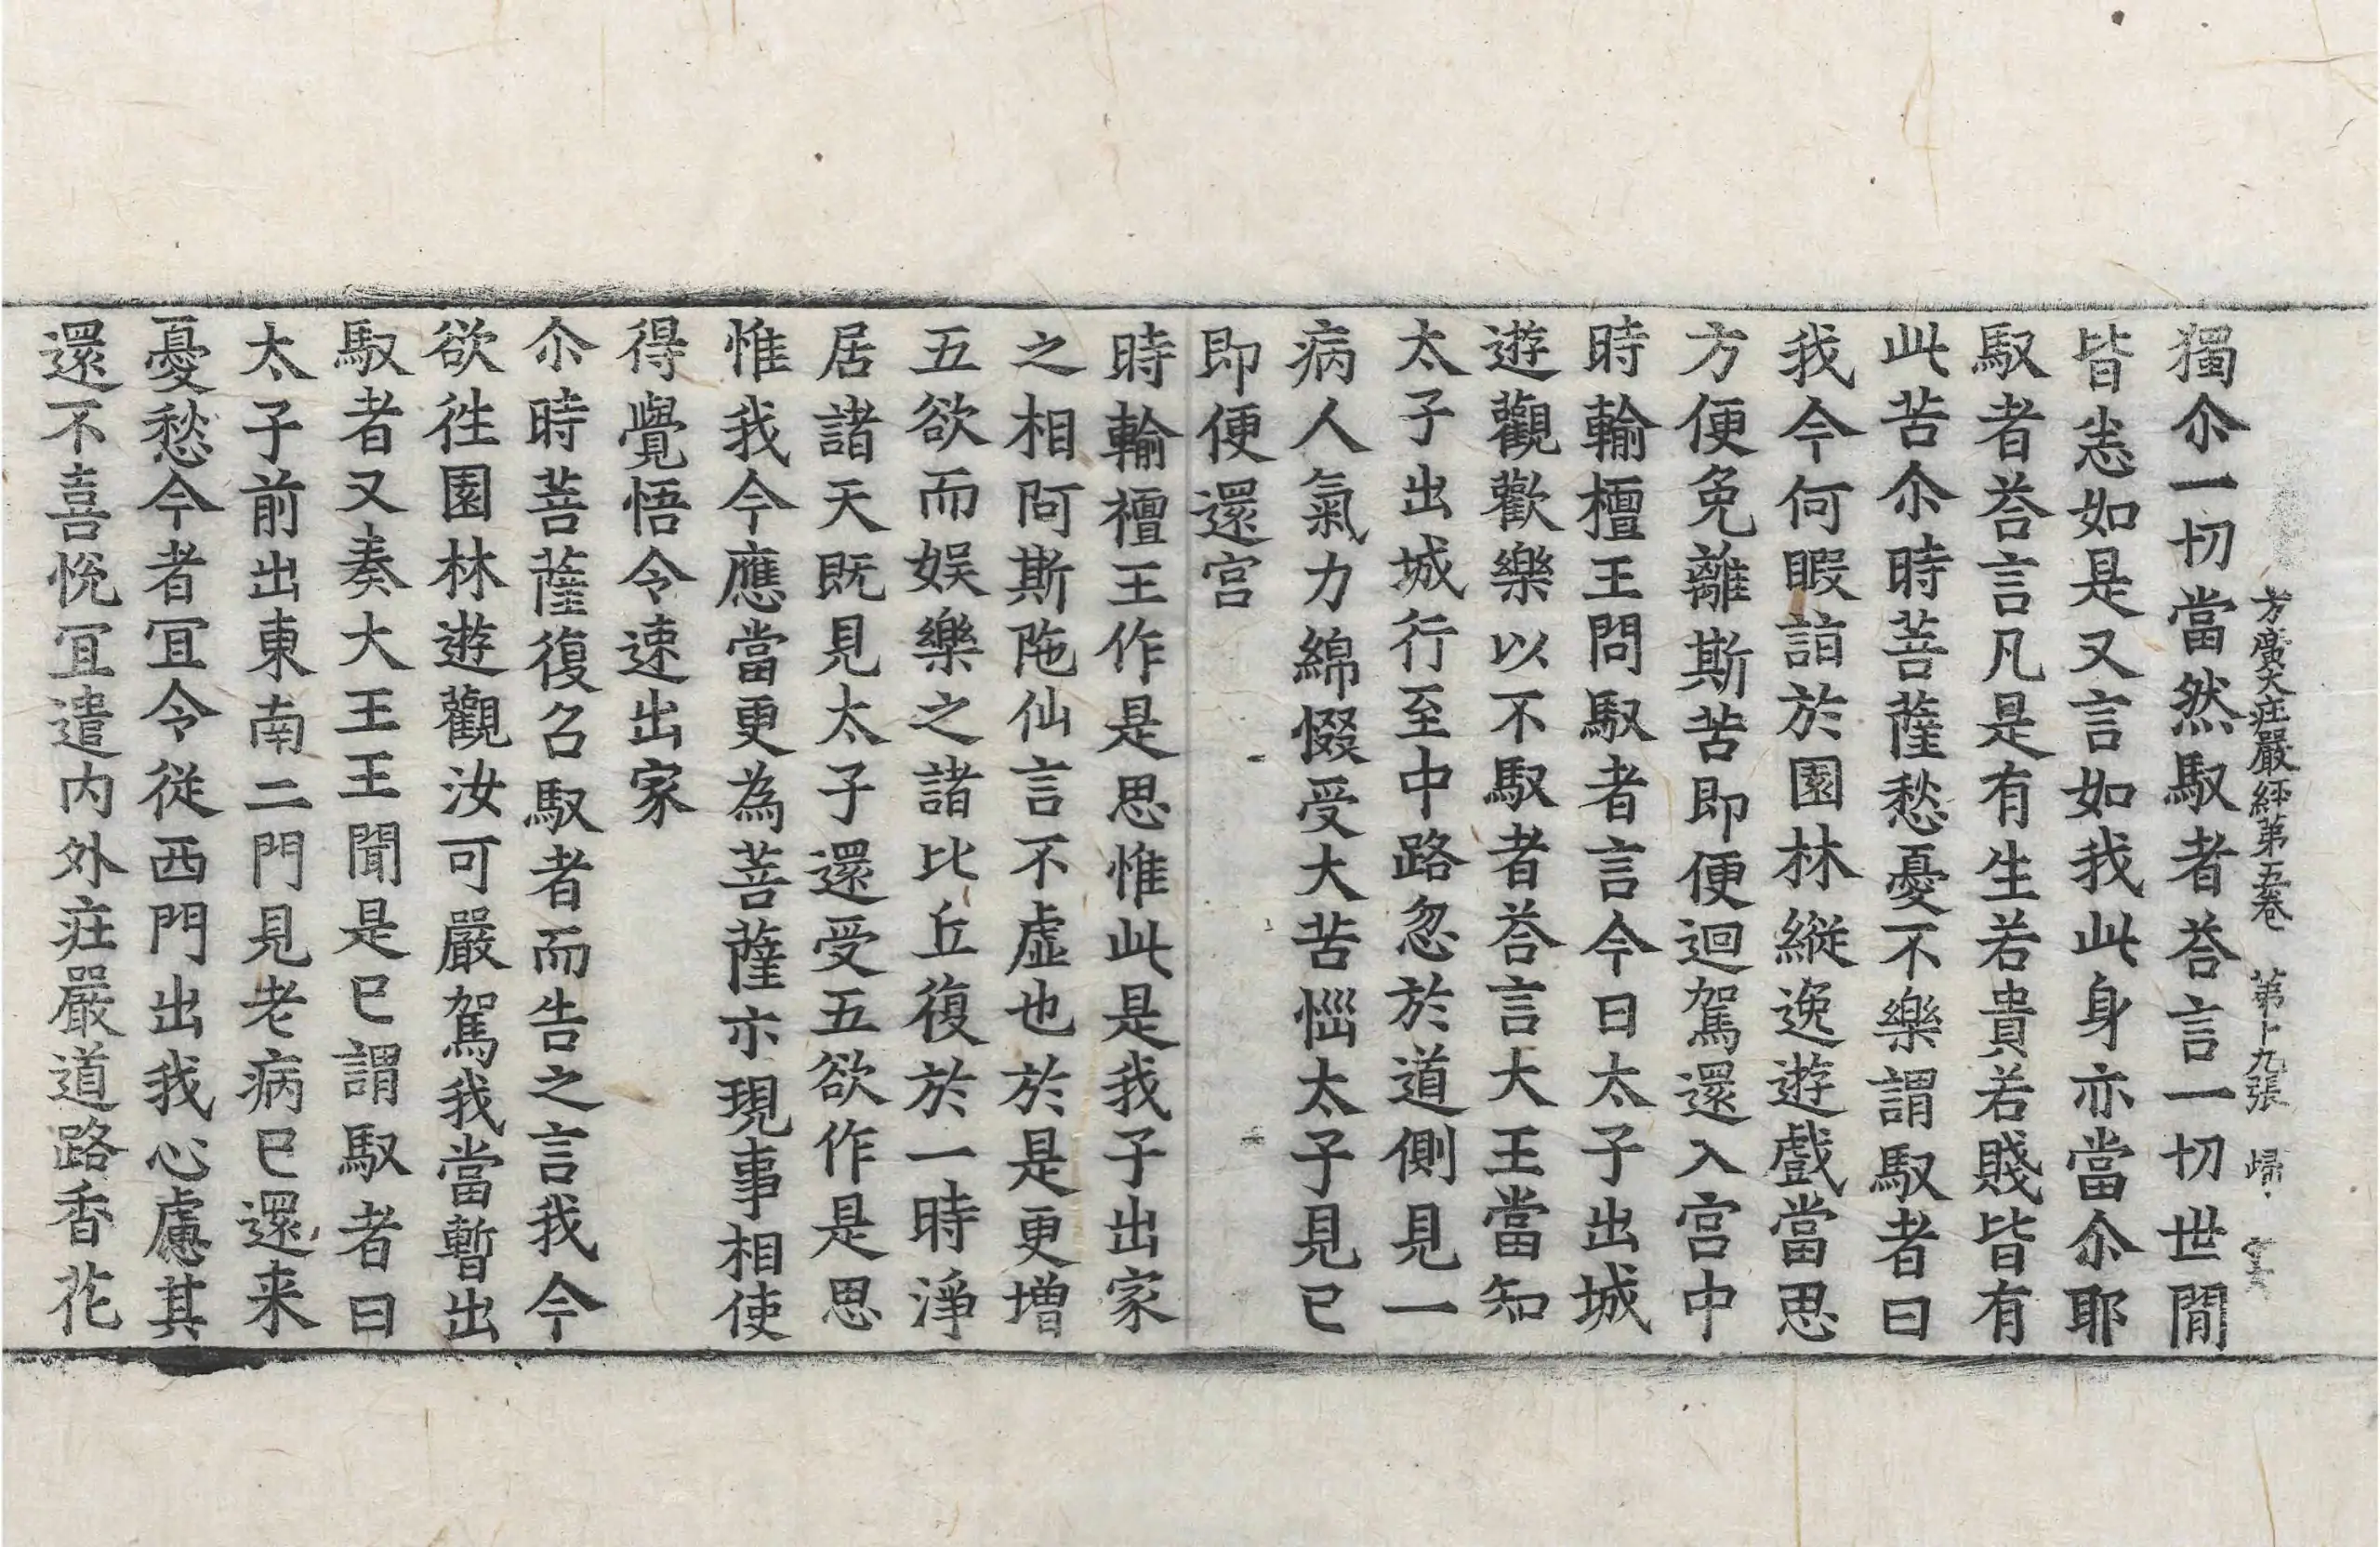 方廣大莊嚴經第五卷　第十九張　歸
獨尒一切當然馭者荅言一切世間
皆悉如是又言如我此身亦當尒耶
馭者荅言凡是有生若貴若賤皆有
此苦尒時菩薩愁憂不樂謂馭者曰
我今何暇詣於園林縱逸遊戲當思
方便免離斯苦即便迴駕還入宮中
時輸檀王問馭者言今日太子出城
遊觀歡樂以不馭者荅言大王當知
太子出城行至中路忽於道側見一
病人氣力綿惙受大苦惱太子見已
即便還宮
時輸檀王作是思惟此是我子出家
之相阿斯陁仙言不虛也於是更增
五欲而娛樂之諸比丘復於一時淨
居諸天旣見太子還受五欲作是思
惟我今應當更為菩薩亦現事相使
得覺悟令速出家
尒時菩薩復召馭者而告之言我今
欲往園林遊觀汝可嚴駕我當暫出
馭者又奏大王王聞是已謂馭者曰
太子前出東南二門見老病已還来
憂愁今者冝令從西門出我心慮其
還不喜悅冝遣内外莊嚴道路香花